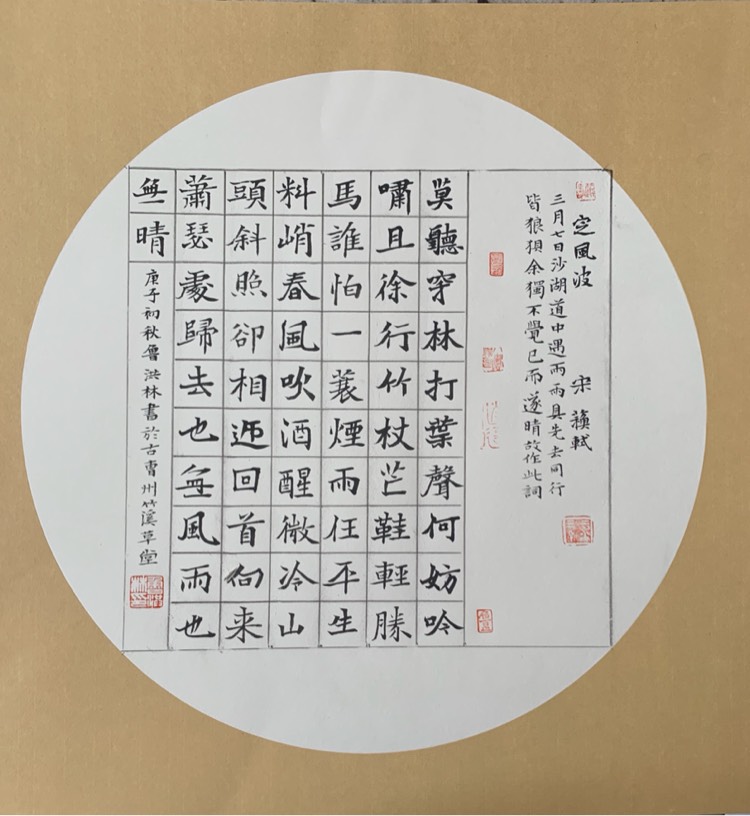 定風波 宋 蘇軾
三月七日沙湖道中遇雨雨具先去同行
皆狼狽余獨不覺已而遂晴故作此詞
莫聽穿林打葉聲何妨吟
嘯且徐行竹杖芒鞋輕勝
馬誰怕一蓑煙雨任平生
料峭春風吹酒醒微冷山
頭斜照卻相迎回首向来
蕭瑟處歸去也無風雨也
無晴
庚子初秋魯洪林書於古曹州竹溪草堂